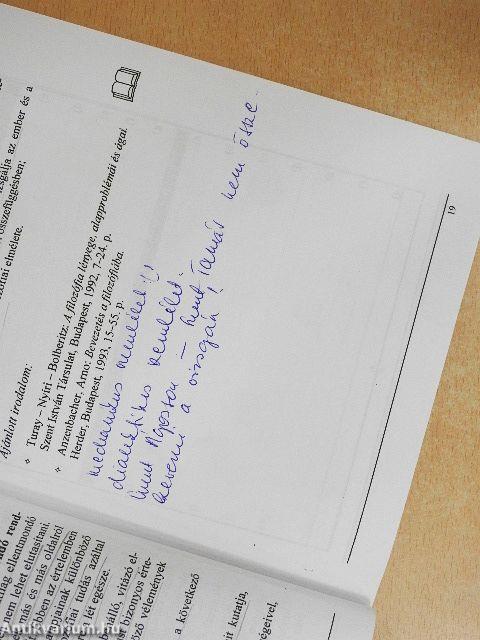 vizsgálja az ember és a
összefüggésben;
elmélete.
Ajánlott irodalom:
Turay – Nyíri – Bolberitz: A filozófia lényege, alapproblémái és ágai.
Szent István Társulat, Budapest, 1992, 7–24. p.
Anzenbacher, Arno: Bevezetés a filozófiába.
Herder, Budapest, 1993, 15–55. p.
mechanikus szemlélet!!
dialektikus szemlélet.
Szent Ágoston – Szent Tamás nem össze-
keverni a vizsgán!
19
rend-
ellentmondó
nem lehet elutasítani.
más és más oldalról
ben az értelemben
különböző
tudás azáltal
lét egésze.
vitázó el-
bizonyos érte-
vélemények
a következő
kutatja,
ségeivel,
Antikvarium.hu